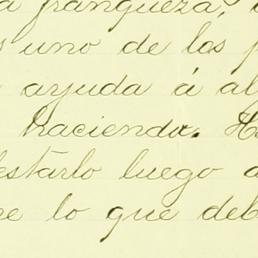 a franqueza,
uno de los
ayuda á al
hacienda. H
estarlo luego a
e lo que deb